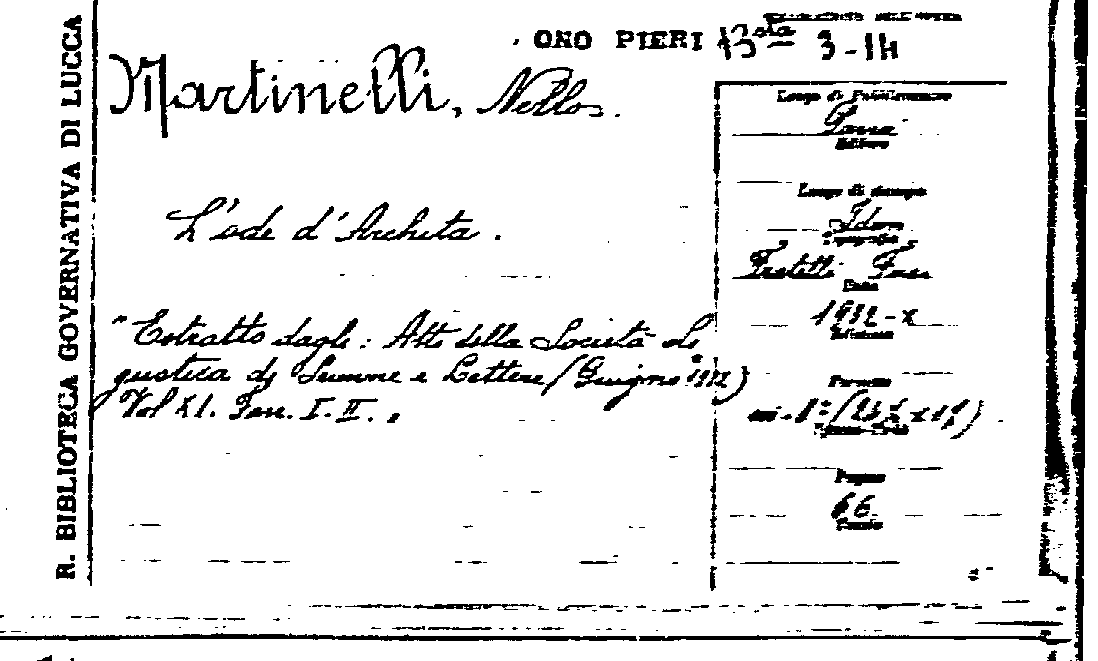 R. BIBLIOTECA GOVERNATIVA DI LUCCA
ONO PIERI 13sta 3-14
Martinelli, Nello.
L'ode d'Archita.
"Estratto dagli: Atti della Società Li
gustica di Scienze e Lettere (Giugno 1932)
Vol XI. Fasc. I-II.
Luogo di Pubblicazione
Pavia
Editore
Luogo di stampa
Idem
Tipografia
Fratelli Fusi
Data
1932-X
Edizione
Formato
in-8° (
Pagine
16